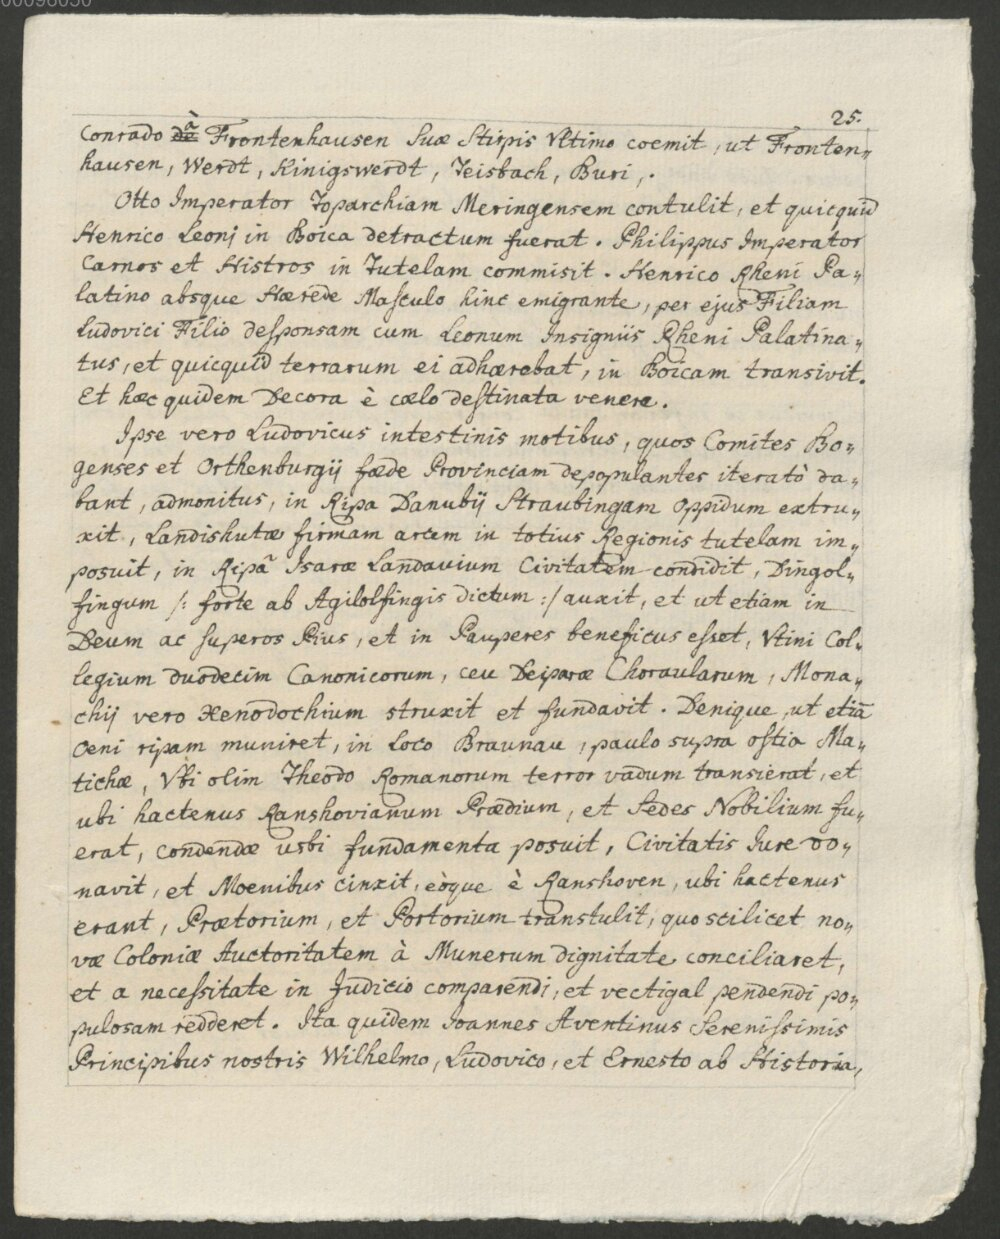 00096050
25.
Conrado à Frontenhausen Suæ Stirpis Ultimo coemit, ut Fronten„
hausen, Werdt, Kinigswerdt, Teisbach, Buri,.
Otto Imperator Toparchiam Meringensem contulit, et quicquid
Henrico Leonj in Boica detractum fuerat. Philippus Imperator
Carnos et Histros in Tutelam commisit. Henrico Rheni Pa„
latino absque Hærede Masculo hinc emigrante, per ejus Filiam
Ludovici Filio desponsam cum Leonum Insigniis Rheni Palatina„
tus, et quicquid terrarum ei adhærebat, in Boicam transivit.
Et hæc quidem Decora è cælo destinata venere.
Ipse vero Ludovicus intestinis motibus, quos Comites Bo„
genses et Orthenburgij fæde Provinciam depopulantes iteratò da„
bant, admonitus, in Ripa Danubij Straubingam Oppidum extru„
xit, Landishutæ firmam arcem in totius Regionis tutelam im„
posuit, in Ripâ Isaræ Landavium Civitatem condidit, Dingol„
fingum /: forte ab Agilolfingis dictum :/ auxit, et ut etiam in
Deum ac superos Pius, et in Pauperes beneficus esset, Vtini Col„
legium duodecim Canonicorum, ceu Deiparæ Choraularum, Mona„
chij vero Xenodochium struxit et fundavit. Denique, ut etiā
Oeni ripam muniret, in Loco Braunau, paulo supra ostia Ma„
tichæ, Vbi olim Theodo Romanorum terror vadum transierat, et
ubi hactenus Ranshovianum Prædium, et Sedes Nobilium fu„
erat, condendæ urbi fundamenta posuit, Civitatis Jure do„
navit, et Moenibus cinxit, eòque è Ranshoven, ubi hactenus
erant, Prætorium, et Portorium transtulit, quo scilicet no„
væ Coloniæ Auctoritatem à Munerum dignitate conciliaret,
et a necessitate in Judicio comparendi, et vectigal pendendi po„
pulosam redderet. Ita quidem Joannes Aventinus Serenissimis
Principibus nostris Wilhelmo, Ludovico, et Ernesto ab Historia,